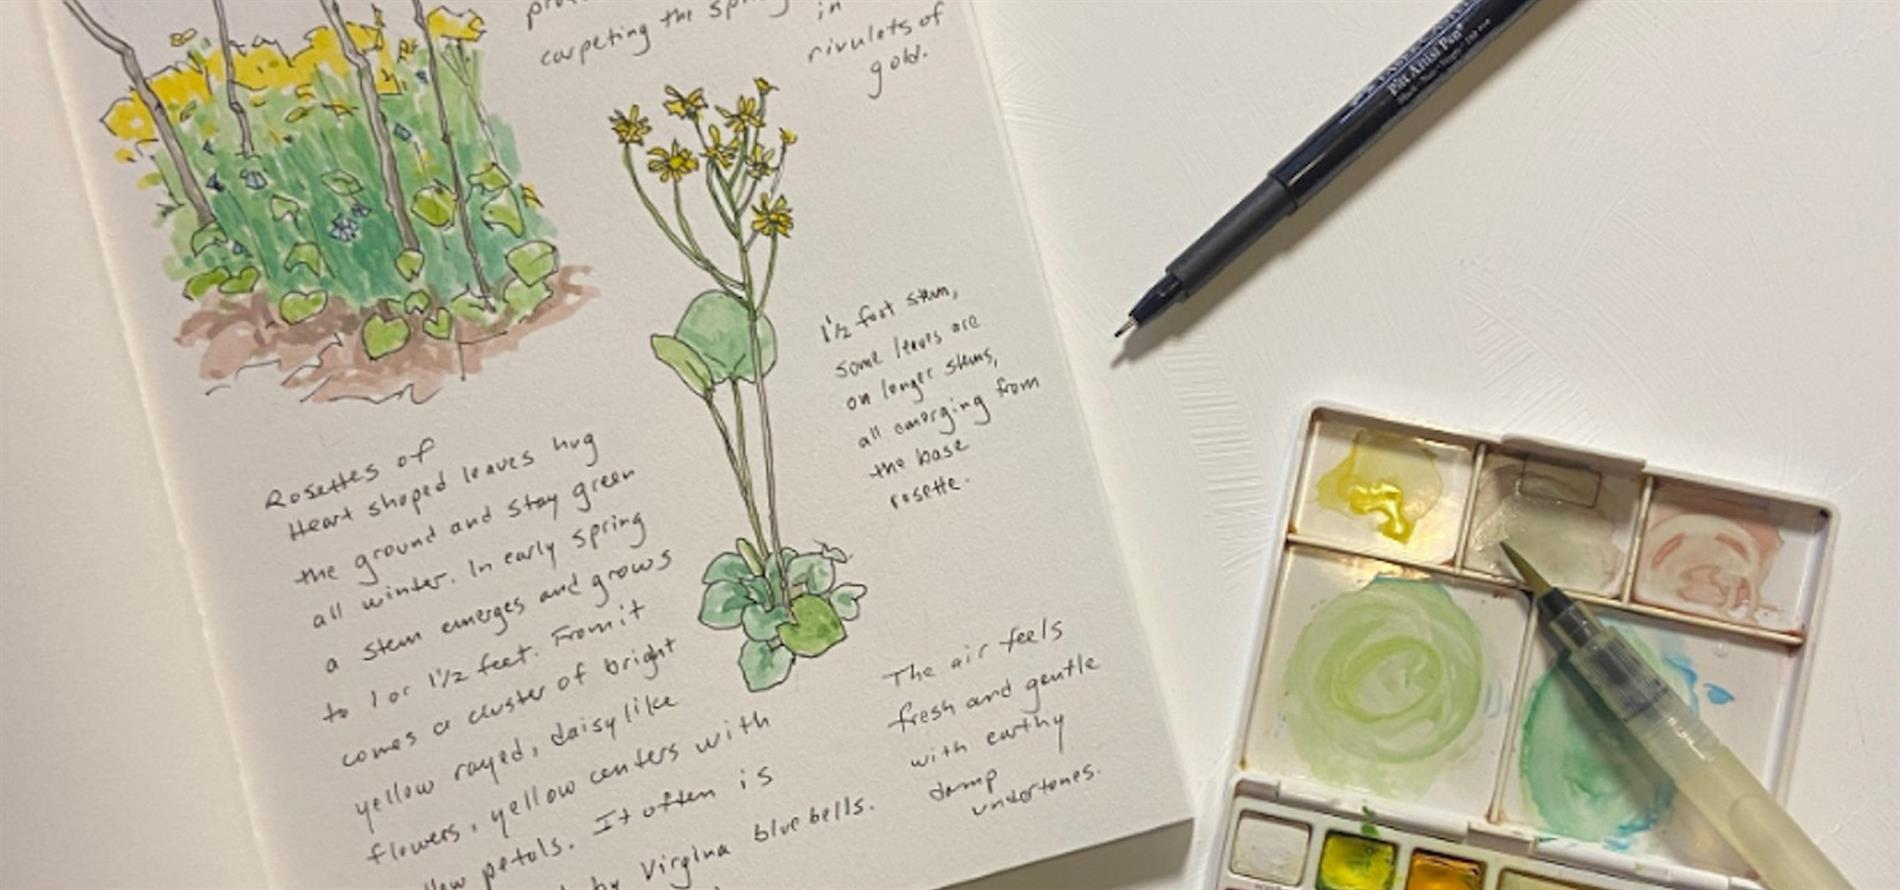 carpeting the spring
in
rivulets of
gold.
1 1/2 foot stem,
some leaves are
on longer stems,
all emerging from
the base
rosette.
Rosettes of
Heart shaped leaves hug
the ground and stay green
all winter. In early spring
a stem emerges and grows
to 1 or 1 1/2 feet. From it
comes a cluster of bright
yellow rayed, daisy like
flowers, yellow centers with
petals. It often is
by Virgina bluebells.
The air feels
fresh and gentle
with earthy
damp
undertones.
Pitt Artist Pen